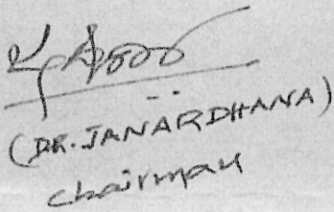 (DR. JANARDHANA)
chairman